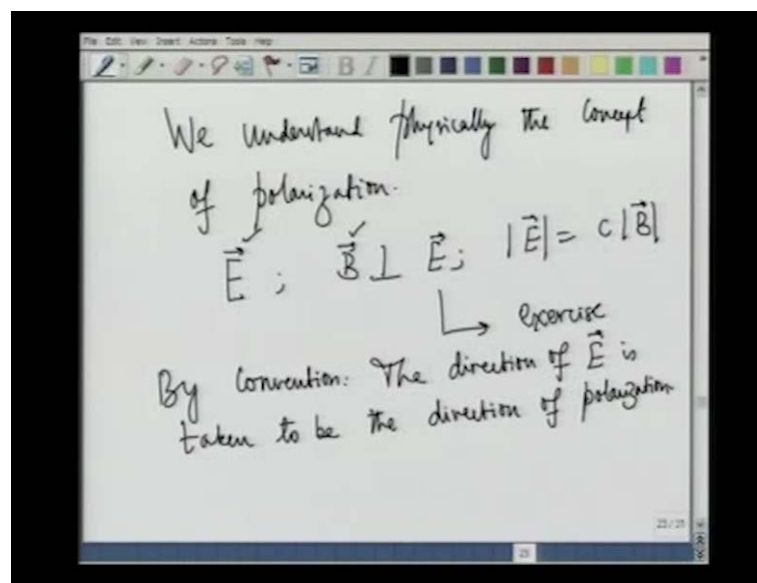 File Edit View Insert Actions Tools Help
We understand physically the Concept
of polarization.
E⃗ ; B⃗ ⊥ E⃗; |E⃗| = c|B⃗|
exercise
By Convention: The direction of E⃗ is
taken to be the direction of polarization